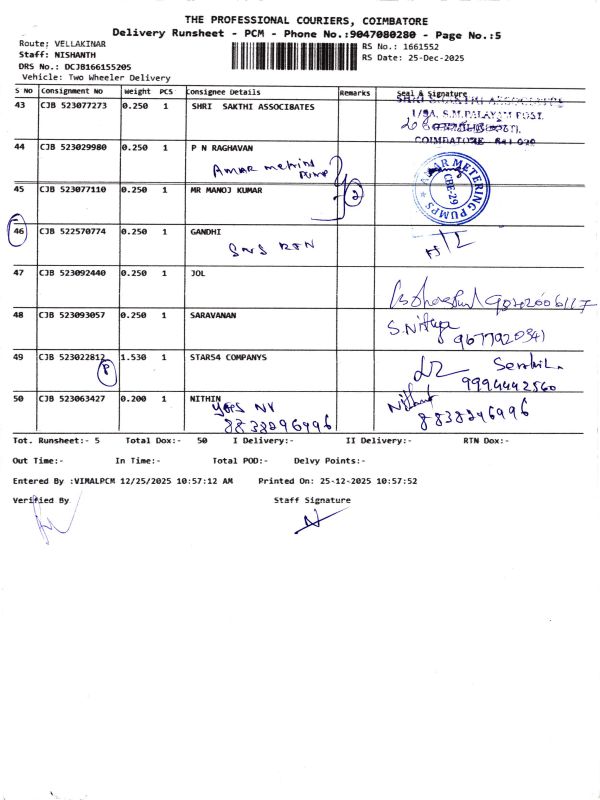 THE PROFESSIONAL COURIERS, COIMBATORE
Delivery Runsheet - PCM - Phone No.:9047080280 - Page No.:5
Route; VELLAKINAR
RS No.: 1661552
Staff: NISHANTH
RS Date: 25-Dec-2025
DRS No.: DCJB166155205
Vehicle: Two Wheeler Delivery
S NO Consignment NO Weight PCS Consignee Details Remarks Seal & Signature
43 CJB 523077273 0.250 1 SHRI SAKTHI ASSOCIBATES
1/9A, S.M.PALAYAM POST,
COIMBATORE
44 CJB 523029980 0.250 1 P N RAGHAVAN
Ammar metring Pump
AMAR METERING PUMPS
CBE-29
45 CJB 523077110 0.250 1 MR MANOJ KUMAR
2
46 CJB 522570774 0.250 1 GANDHI
SNS
47 CJB 523092440 0.250 1 JOL
48 CJB 523093057 0.250 1 SARAVANAN
S.Nithya
49 CJB 523022812 1.530 1 STAR54 COMPANYS
P
9994442560
50 CJB 523063427 0.200 1 NITHIN
8838296996
Nithin
8838296996
Tot. Runsheet:- 5 Total Dox:- 50 I Delivery:- II Delivery:- RTN Dox:-
Out Time:- In Time:- Total POD:- Delvy Points:-
Entered By :VIMALPCM 12/25/2025 10:57:12 AM Printed On: 25-12-2025 10:57:52
Verified By Staff Signature